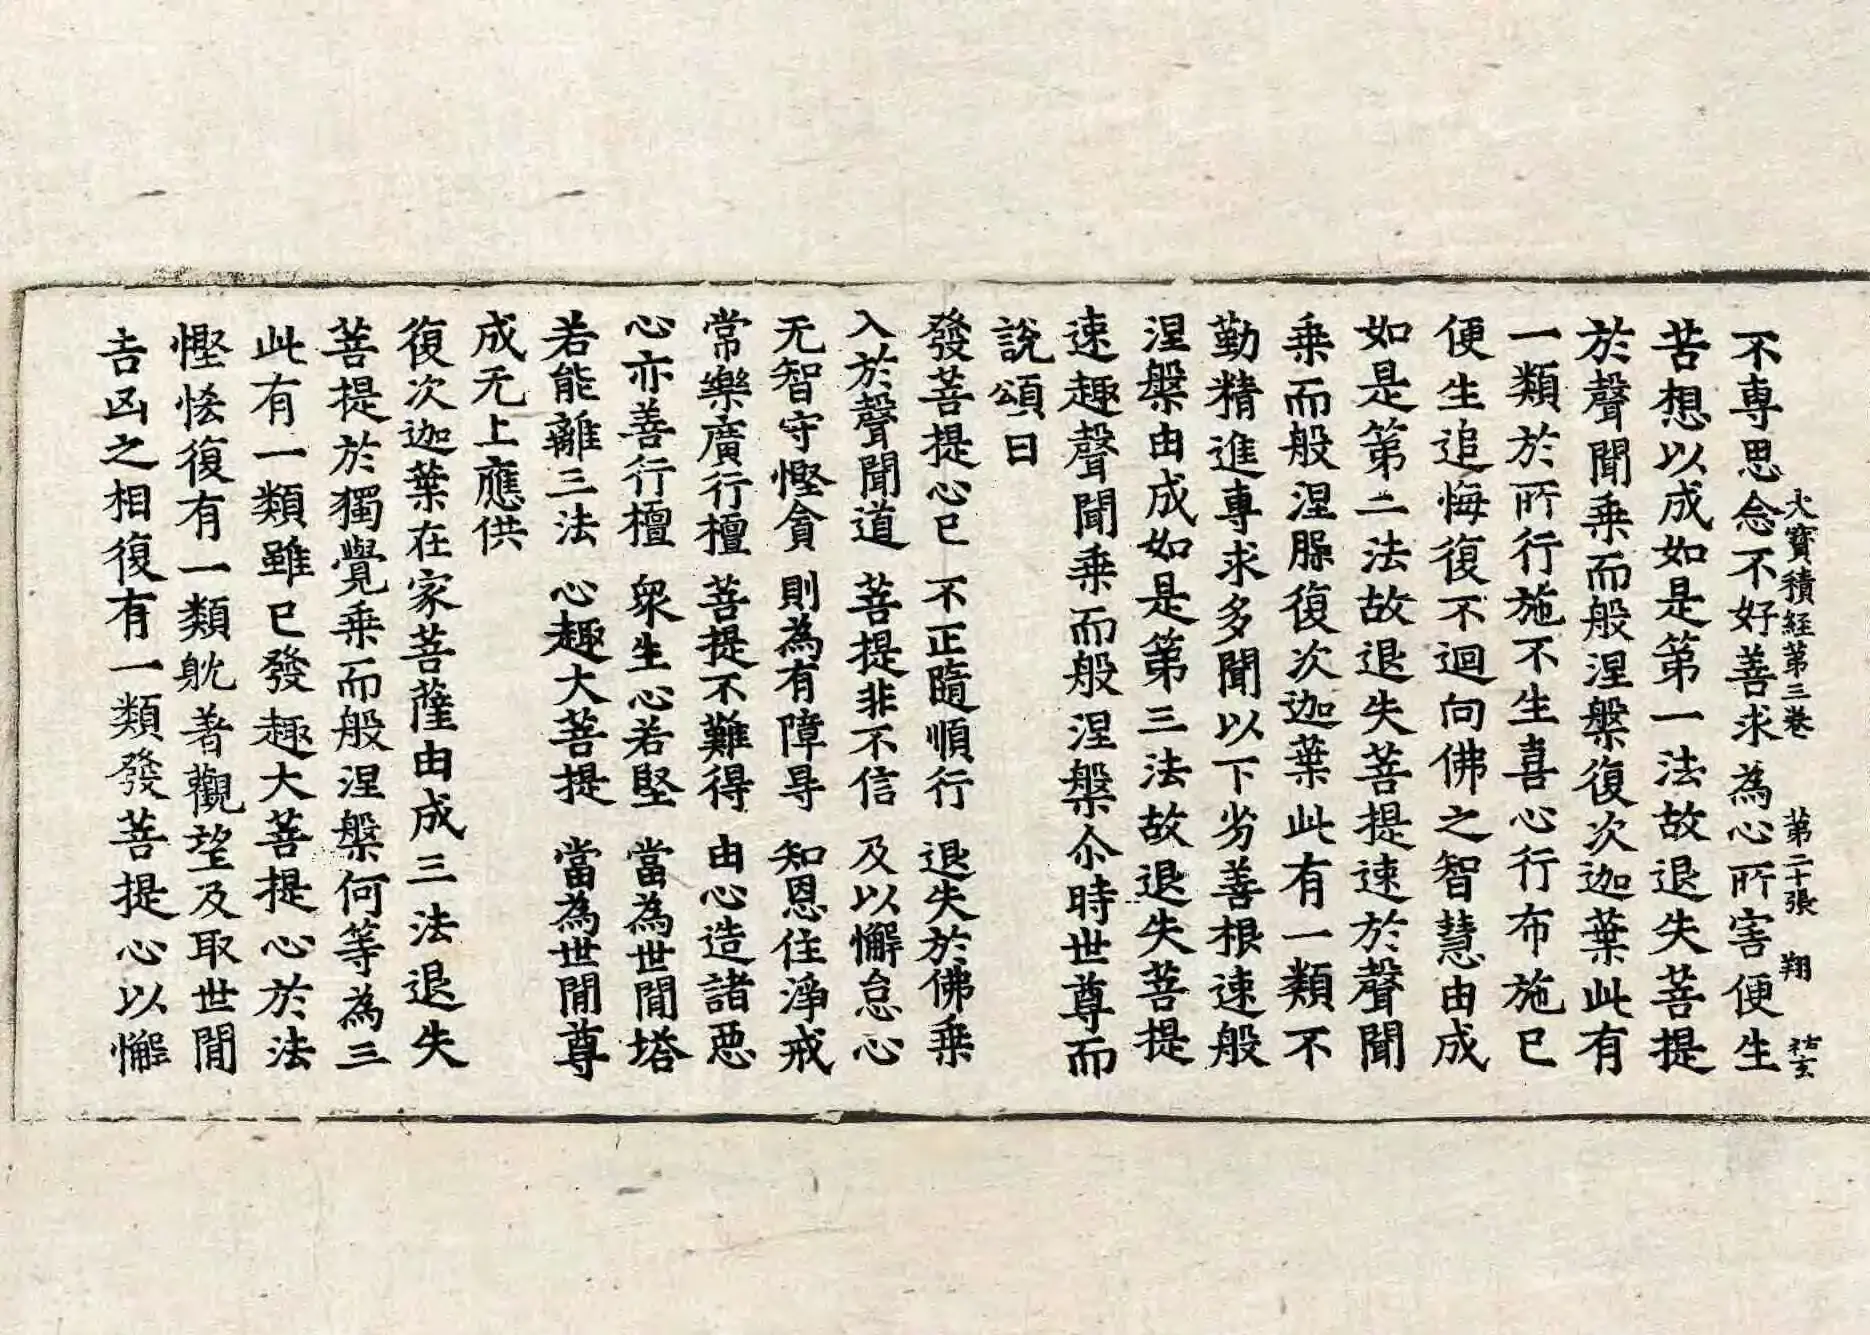 大寳積経苐三卷　苐二十張　翔　祐玄
不専思念不好善求為心所害便生
苦想以成如是苐一法故退失菩提
於聲聞乗而般涅槃復次迦葉此有
一類於所行施不生喜心行布施已
便生追悔復不迴向佛之智慧由成
如是苐二法故退失菩提速於聲聞
乗而般涅槃復次迦葉此有一類不
勤精進専求多聞以下劣善根速般
涅槃由成如是苐三法故退失菩提
速趣聲聞乗而般涅槃尒時世尊而
說頌曰
發菩提心已　不正隨順行　退失於佛乗
入於聲聞道　菩提非不信　及以懈怠心
无智守慳貪　則為有障㝵　知恩住淨戒
常樂廣行檀　菩提不難得　由心造諸惡
心亦善行檀　衆生心若堅　當為世間塔
若能離三法　心趣大菩提　當為世間尊
成无上應供
復次迦葉在家菩薩由成三法退失
菩提於獨覺乗而般涅槃何等為三
此有一類雖已發趣大菩提心於法
慳悋復有一類躭著觀望及取世間
吉凶之相復有一類發菩提心以懈